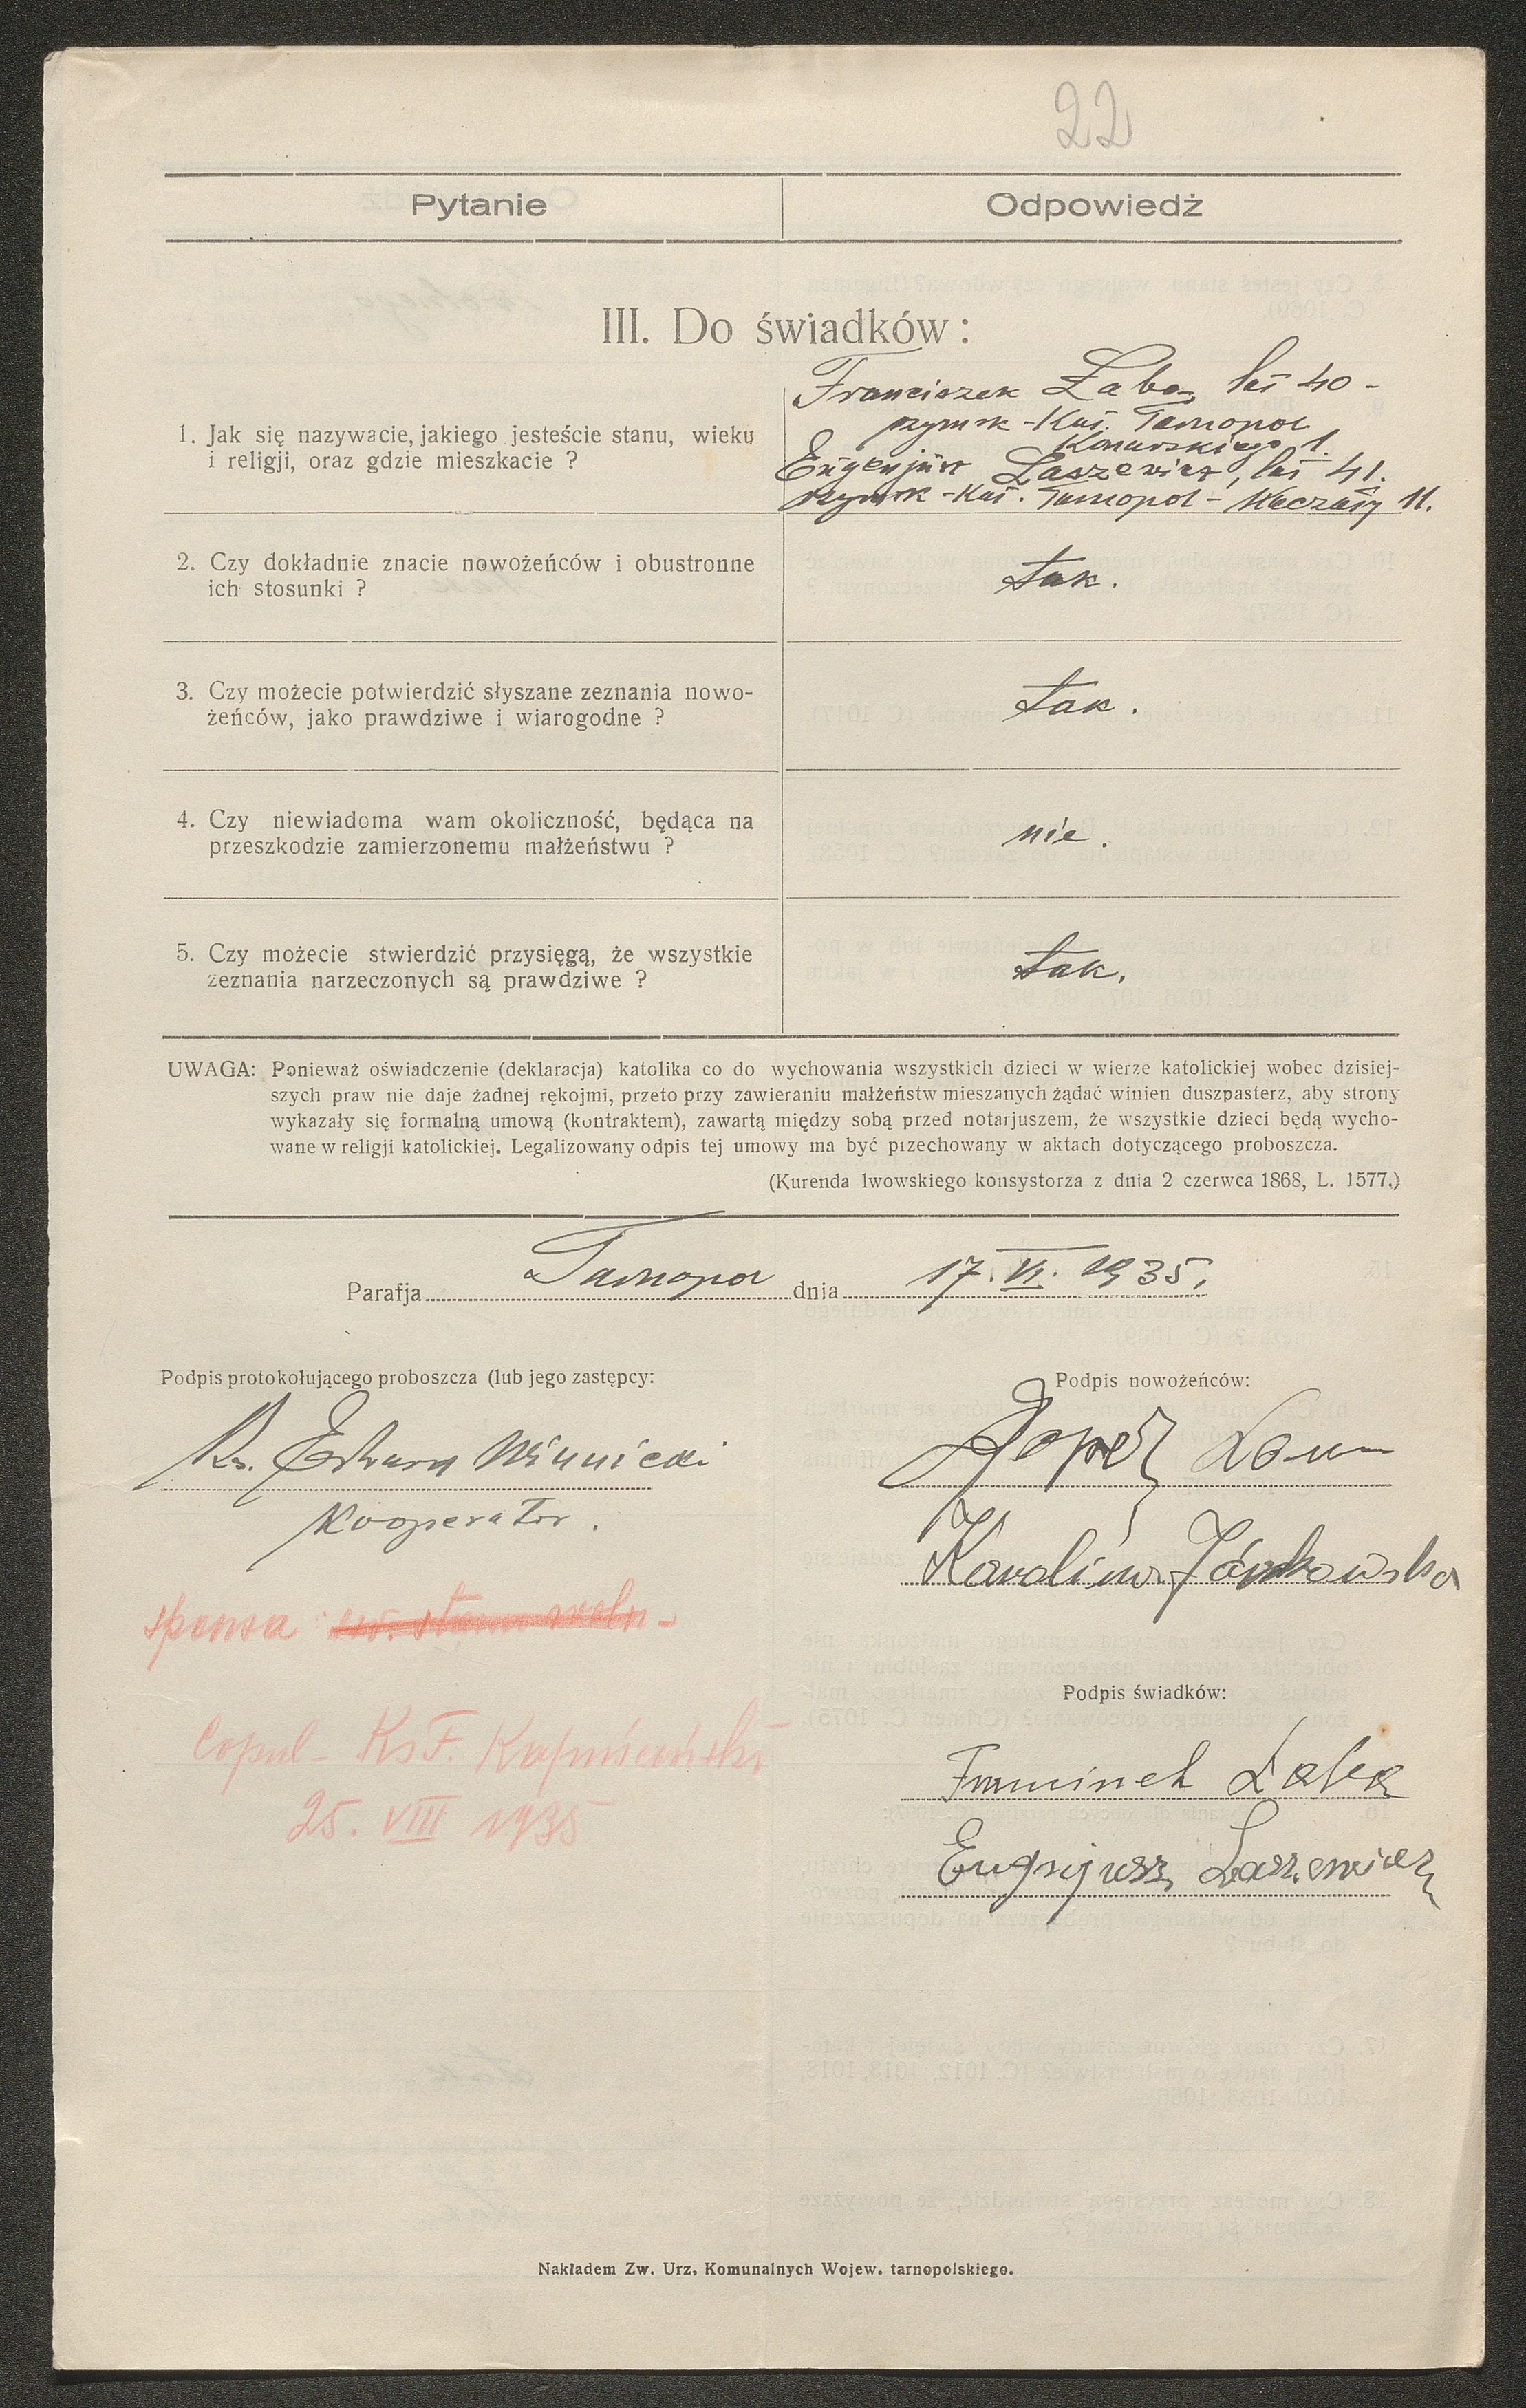 22
Pytanie
Odpowiedź
III. Do świadków:
1. Jak się nazywacie, jakiego jesteście stanu, wieku
i religji, oraz gdzie mieszkacie ?
Franciszek Łaba, lat 40 -
rzymsk - Kat. Tarnopol
Konarskiego 1.
Eugenjusz Łaszewicz, lat 41.
rzymsk - Kat. Tarnopol - 11.
2. Czy dokładnie znacie nowożeńców i obustronne
ich stosunki ?
tak.
3. Czy możecie potwierdzić słyszane zeznania nowo-
żeńców, jako prawdziwe i wiarogodne ?
tak.
4. Czy niewiadoma wam okoliczność, będąca na
przeszkodzie zamierzonemu małżeństwu ?
nie.
5. Czy możecie stwierdzić przysięgą, że wszystkie
zeznania narzeczonych są prawdziwe ?
tak.
UWAGA: Ponieważ oświadczenie (deklaracja) katolika co do wychowania wszystkich dzieci w wierze katolickiej wobec dzisiej-
szych praw nie daje żadnej rękojmi, przeto przy zawieraniu małżeństw mieszanych żądać winien duszpasterz, aby strony
wykazały się formalną umową (kontraktem), zawartą między sobą przed notarjuszem, że wszystkie dzieci będą wycho-
wane w religji katolickiej. Legalizowany odpis tej umowy ma być przechowany w aktach dotyczącego proboszcza.
(Kurenda lwowskiego konsystorza z dnia 2 czerwca 1868, L. 1577.)
Parafja Tarnopol dnia 17. VI. 1935.
Podpis protokołującego proboszcza (lub jego zastępcy:
Ks. Edward Winnicki
Kooperator.
Podpis nowożeńców:
Karolina Jankowska
sponsa św. stanu woln -
Copul - Ks F. Kapuściński
25. VIII 1935
Podpis świadków:
Franciszek Łaba
Eugenjusz Łaszewicz
Nakładem Zw. Urz. Komunalnych Wojew. tarnopolskiego.